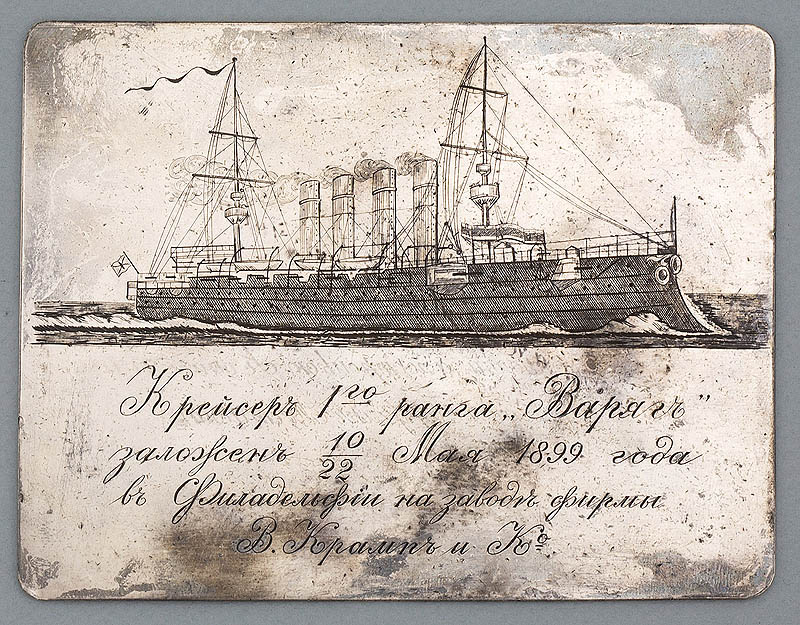 Крейсеръ 1го ранга „Варягъ"
заложенъ 10/22 Мая 1899 года
въ Филадельфіи на заводѣ фирмы
В. Крампъ и Ко